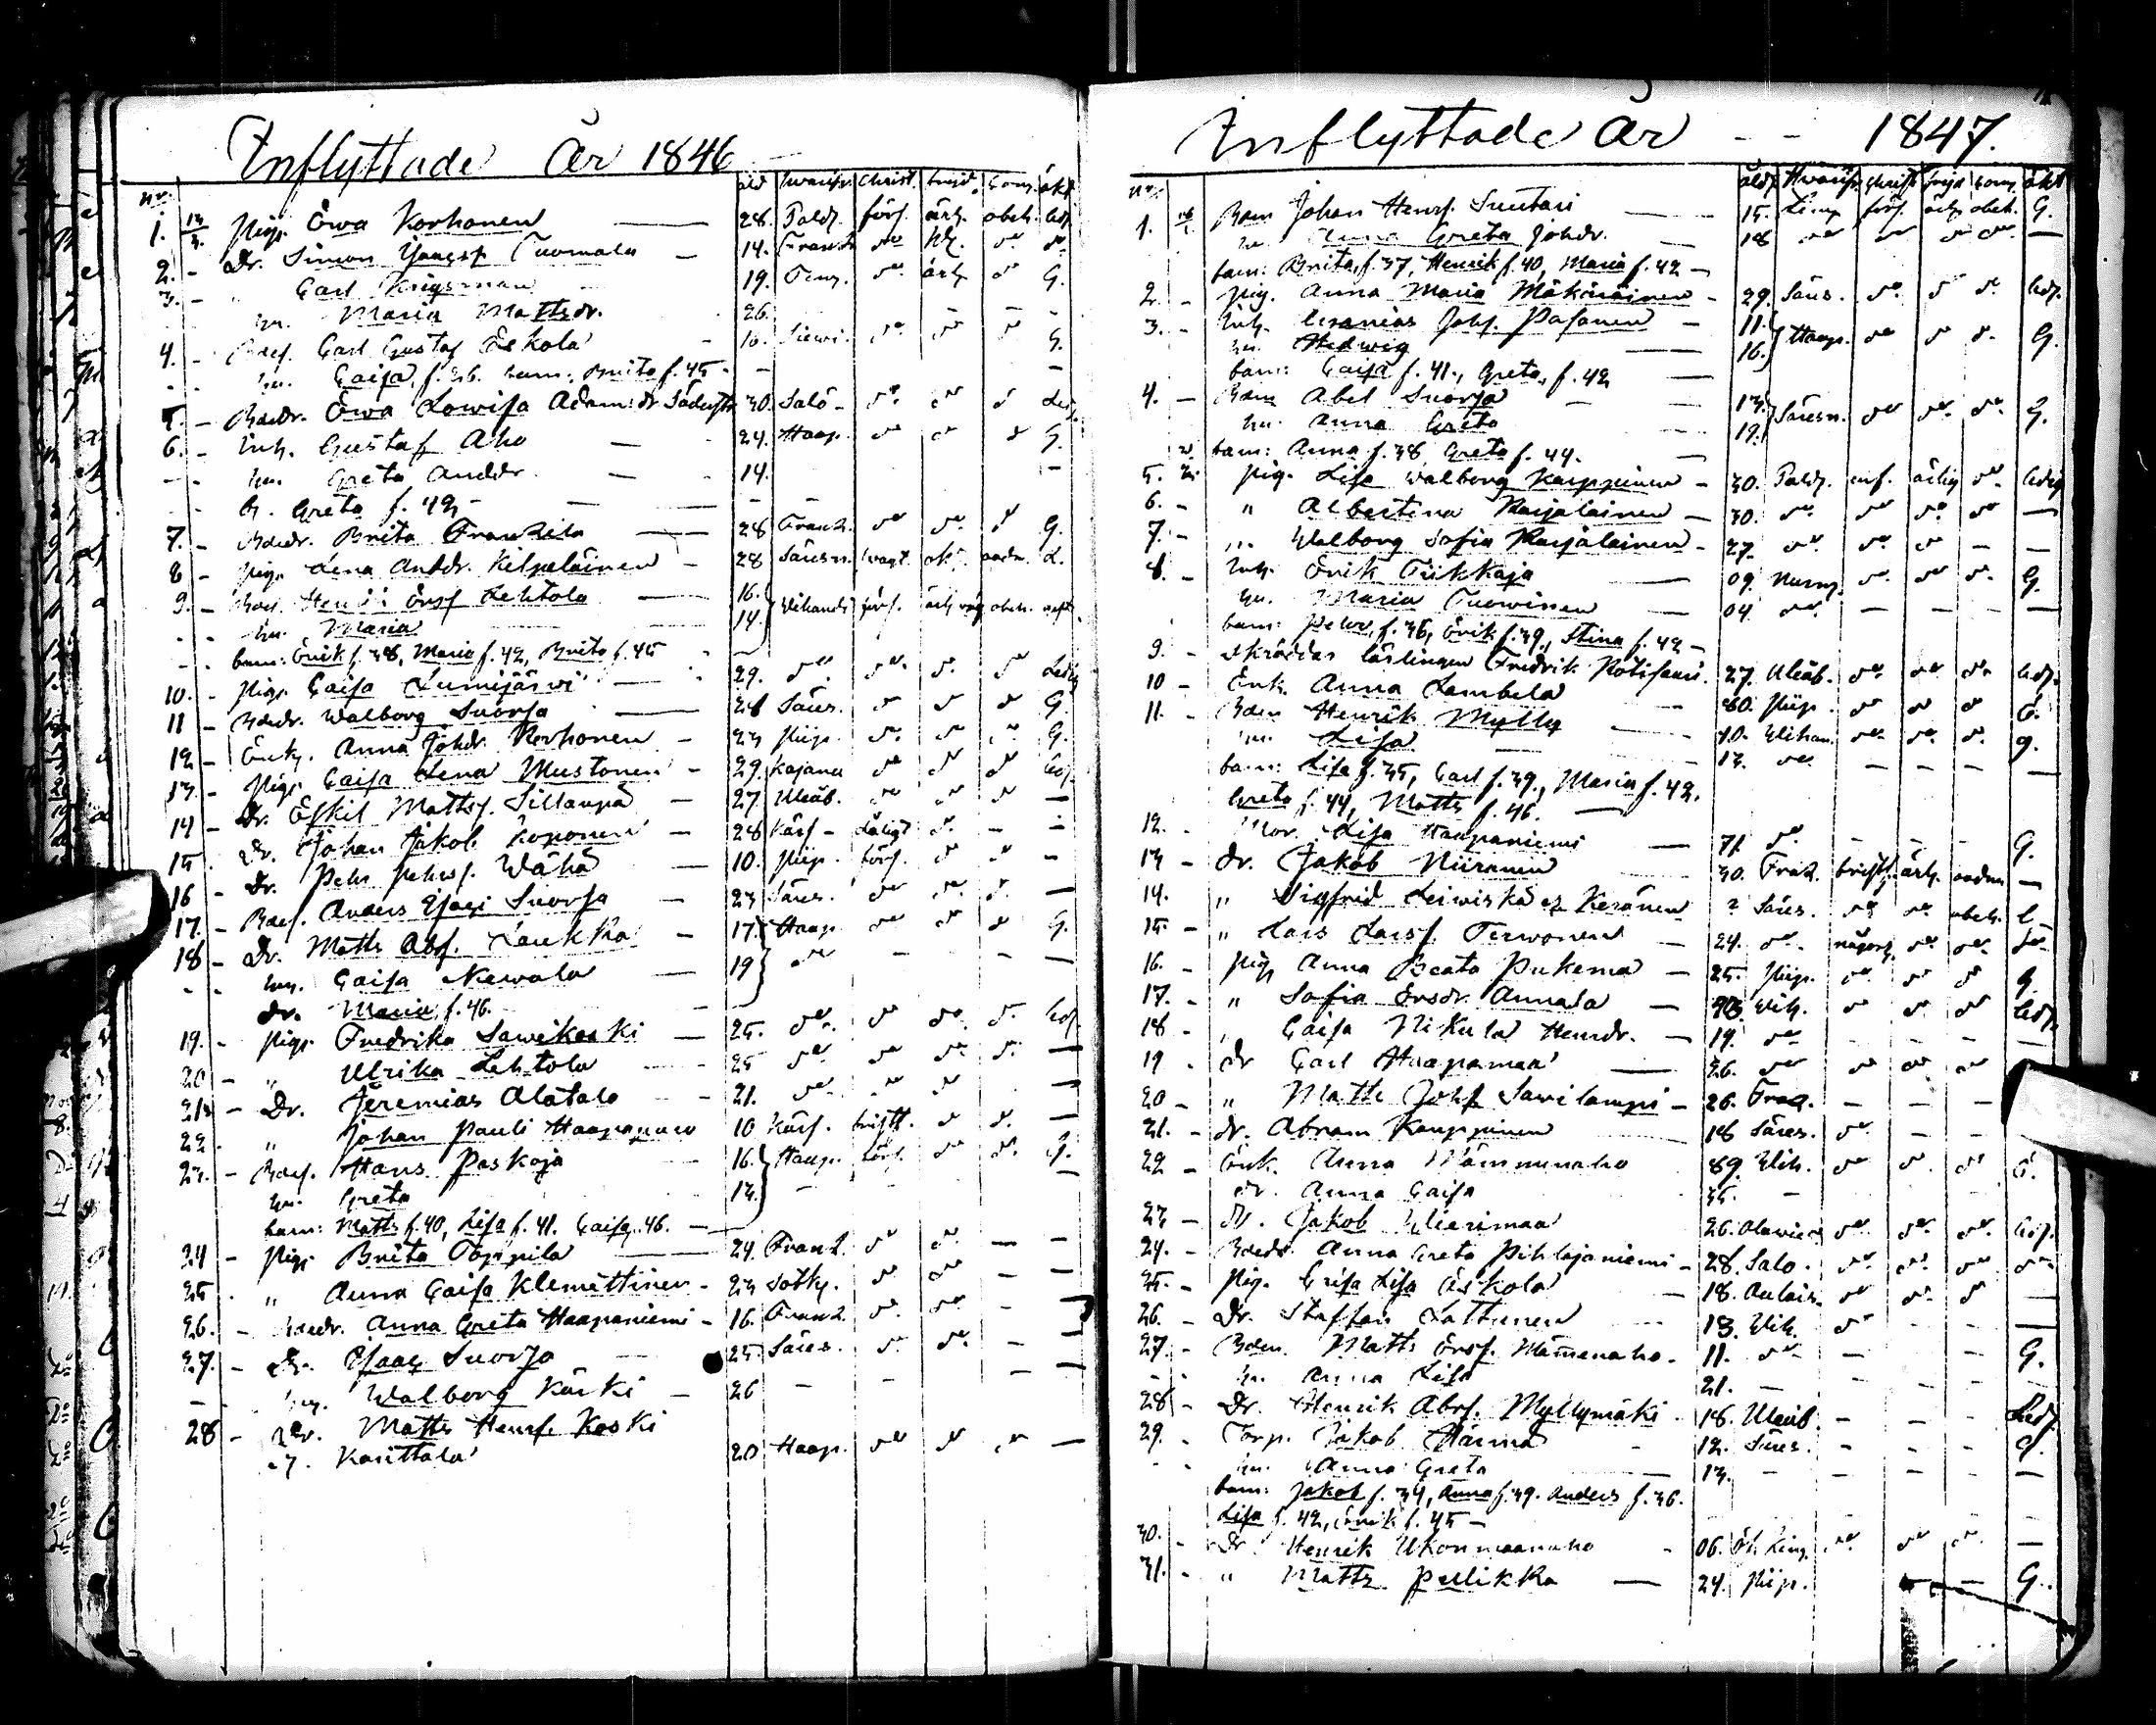 Inflyttade År 1846
nr. åld hwarifr. christ. frejd. com. äkt.
1. 13/3. Pig. Ewa Korhonen 28. Pald. förs. ärl. obeh. led.
2. - Dr. Simon Isacsf Tuomala 14. Frantz do do do
3. - " Carl Krigsman 19. Temg. do ärl. do G.
hu. Maria Mattsdr. 26. - - -
4. - Bdes. Carl Gustaf Eskola 16. Siewi. do do do G.
hu. Caisa, f. 26. barn: Brita f. 45 - -
5. - Bdedr. Ewa Lowisa Adam:dr Söderstr 30. Salo - do do do Led.
6. - Inh. Gustaf Aho 24. Haap. do do do G.
hu. Greta Anddr. 14. -
b. Greta f. 42 - - -
7. - Bdedr. Brita Frantzila 28 Frantz. do do do G.
8 - Pig. Lena Anddr. Kilpeläinen - 28 Säresn. wagt. ok. nadn. L.
9. - Bdes. Henrik Ersf Lehtola 16. Wihandi förs. ärl. obeh.
hu. Maria 14.
barn: Erik f. 38, Maria f. 42, Brita f. 45
10. - Pig. Caisa Lumijärwi 29. do do do do Ledig
11 - Bdedr. Walborg Suorsa 28 Säres. do do do G.
12 - Enk. Anna Johdr. Korhonen - 23 Piip. do do do G.
13. - Pig. Caisa Lena Mustonen - 29. Kajana do do do led.
14 - Dr. Eskil Mattsf. Sillanpä - 27 Uleåb. do do do -
15. Dr. Johan Jakob Koponen - 28 Kärs - dåligt do - -
16 - Dr. Pehr Pehrsf. Wähä 10. Piip. förs. do do -
17. - Bdes. Anders Esaei Suorsa - 23 Säres. do do do -
18 - Dr. Matts Absf. Laukka - 17. Haap. do do do G.
hu. Caisa Newala 19 do - - -
dr. Maria, f. 46.
19. - Pig. Fredrika Sawikoski - 25. do do do do led.
20 - " Ulrika Lehtola 25 do do do do -
21. - Dr. Jeremias Alatalo - 21. do do do -
22. " Johan Pauli Haapapuro 10 Kärs. bristf. do do -
23. - Bdes. Hans Paskoja 16. Haap. förs. do do G.
hu. Greta 13. - -
barn: Matts f. 40, Lisa f. 41. Caisa, 46. -
24 - Pig. Brita Töppilä 24. Frantz. do do - -
25 . " Anna Caisa Klemettinen - 23 Sotk. do do - -
26. - Bdedr. Anna Greta Haapaniemi - 16. Frantz. do do -
27. - Dr. Esaag Suorsa 25 Säres. do do - -
hu. Walborg Kärki - 26 - -
28 - Dr. Matts Henrsf. Koski
Karittala 20 Haap. do do do -
Inflyttade År - - 1847.
nr. åld. Hwarifr. christ frejd com. äkt
1. Bdem Johan Henrsf. Suutari 15. Limg. förs. ärlig obeh. G.
hu. Anna Greta Johdr. 18 do do do do -
barn: Brita, f. 37, Henrik f. 40, Maria f. 42 -
2. - Pig. Anna Maria Mäkinäinen - 29. Säres. do do do led.
3. - Inh. Ananias Johsf. Pasanen - 11. Haap. do do do G.
hu. Hedwig 16.
barn: Caisa f. 41., Greta, f. 42
4. - Bdem Abel Suorsa 13. Säresn. do do do G.
hu. Anna Greta 19.
barn: Anna f. 38 Greta f. 44.
5. Pig. Lisa Walborg Karppinen - 30. Pald. enf. ärlig do ledig
6. - " Albertina Karjalainen - 30. do do do do -
7. - " Walborg Sofia Karjalainen - 27. do do do - -
8. - Inh. Erik Tiikkaja 09. Nurm. do do do G.
hu. Maria Tuowinen 04 do - - - -
barn: Pehr, f. 36, Erik f. 39., Stina f. 42 -
9. - Skräddar lärlingen Fredrik Kotisaari. 27. Uleåb. do do do led.
10 - Enk. Anna Lambela 80. Piip. do do do G.
11. - Bdem Henrik Mylly 10. Wihan. do do do G.
hu. Lisa 13. do - - - -
barn: Lisa f. 35, Carl f. 39., Maria f. 42.
Greta f. 44, Matts f. 46.
12. - Mor. Lisa Haapaniemi 71 do - - - G.
13 - dr. Jakob Niiranen 30. Fraz. bristf. ärl. nadn -
14. " Sigfrid Leiwiskä ez Keränen ? Säres. do do obeh. l-
15. - " Lars Larsf. Terwonen - 24. do någorl. do do do
16. - Pig. Anna Beata Pukema - 25. Piip. do do do G.
17. - " Sofia Ersdr. Annala - 23 Wih. do do do led.
18 - " Caisa Nikula Henrdr. - 19. do - - - -
19 - dr Carl Haapamaa 26. do do do do
20 - " Matts Johsf Sawilampi - 26. Fraz. - - -
21. - dr. Abram Kauppinen 18 Säres. do - -
22 - Enk. Anna Mämmunaho 89. Wih. do do do G.
dr. Anna Caisa 35. -
23 - Dr. Jakob Wierimaa 26. do do do led.
24. - Bdedr. Anna Greta Pihlajaniemi - 28. Salo. do do do do
25. - Pig. Grisa Lisa Eskola - 18. Pulais. do do do -
26. - Dr. Staffan Lattunen 13. Wih. do - -
27. - Bdem. Matts Ersf. Mämenaho. 11. do - - G.
hu. Anna Lisa 21. - - - -
28 - Dr. Henrik Absf. Myllymäki - 18. Uleåb. - - - Led.
29. - Torp. Jakob Hannä 12. Säres. - - - G.
hu. Anna Greta 13. - - - -
barn: Jakob f. 34, Anna f. 39. Anders f. 36.
Lisa f. 42, Erik f. 45 -
30. - Dr. Henrik Ukonmaanaho 06. Öf. Limg. do do do -
31. - " Matts Pellikka - 24. Piip. - G.